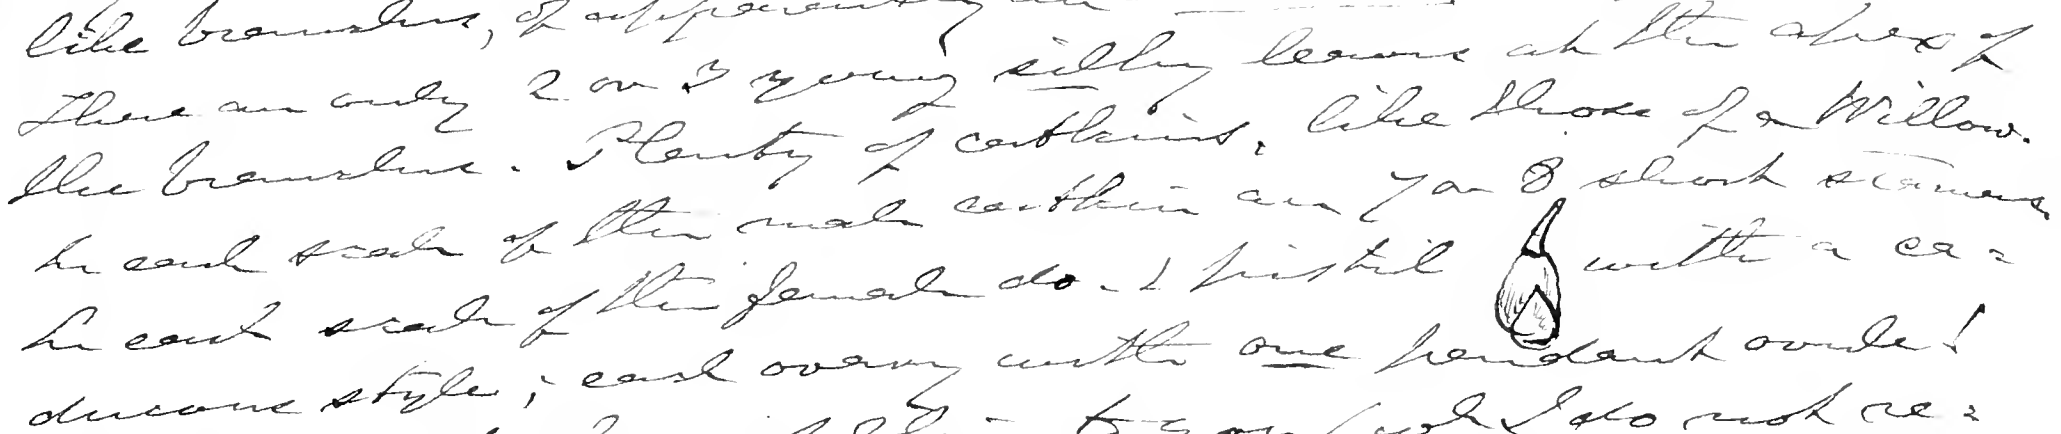 like branches, of apparently an
There are only 2 or 3 young silky leaves at the apex of
the branches. Plenty of catkins, like those of a Willow.
In each scale of the male catkin are 7 or 8 short stamens.
In each scale of the female do. 1 pistil with a ca=
ducous style; each ovary with one pendant ovule!
do not re=